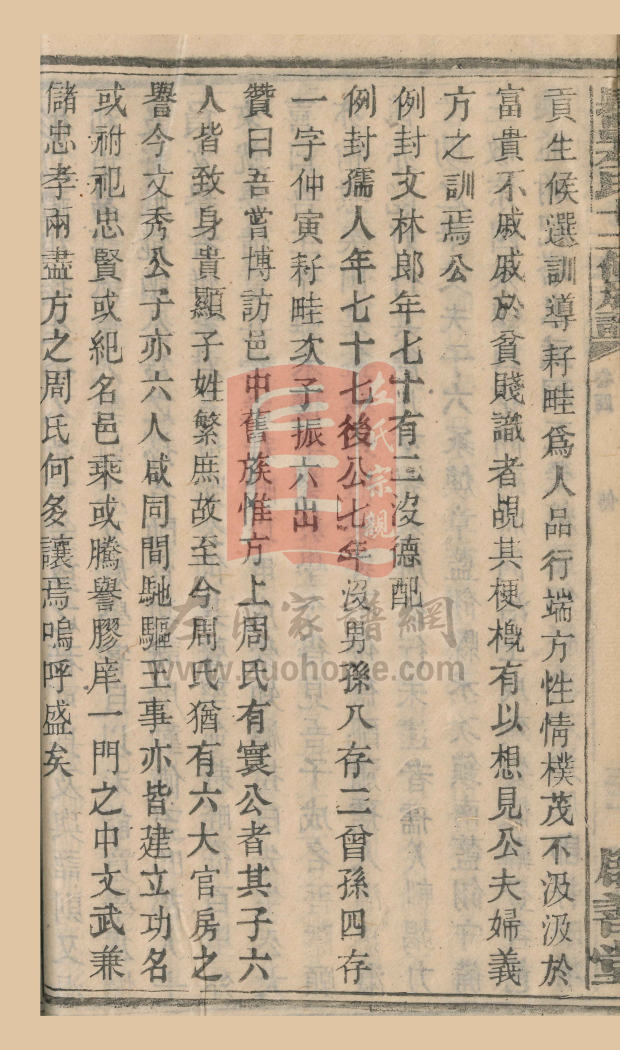 貢生候選訓導耔畦爲人品行端方性情樸茂不汲汲於
富貴不戚戚於貧賤識者覘其梗槪有以想見公夫婦義
方之訓焉公
例封文林郎年七十有二沒德配
例封孺人年七十七後公七年沒男孫八存二曾孫四存
一字仲寅耔畦次子振六出
贊曰吾嘗博訪邑中舊族惟方上周氏有寰公者其子六
人皆致身貴顯子姓繁庶故至今周氏猶有六大官房之
譽今文秀公子亦六人咸同間馳驅王事亦皆建立功名
或祔祀忠賢或紀名邑乘或騰譽膠庠一門之中文武兼
儲忠孝兩盡方之周氏何多讓焉嗚呼盛矣
卷四
善堂
左氏宗親
左氏家譜網